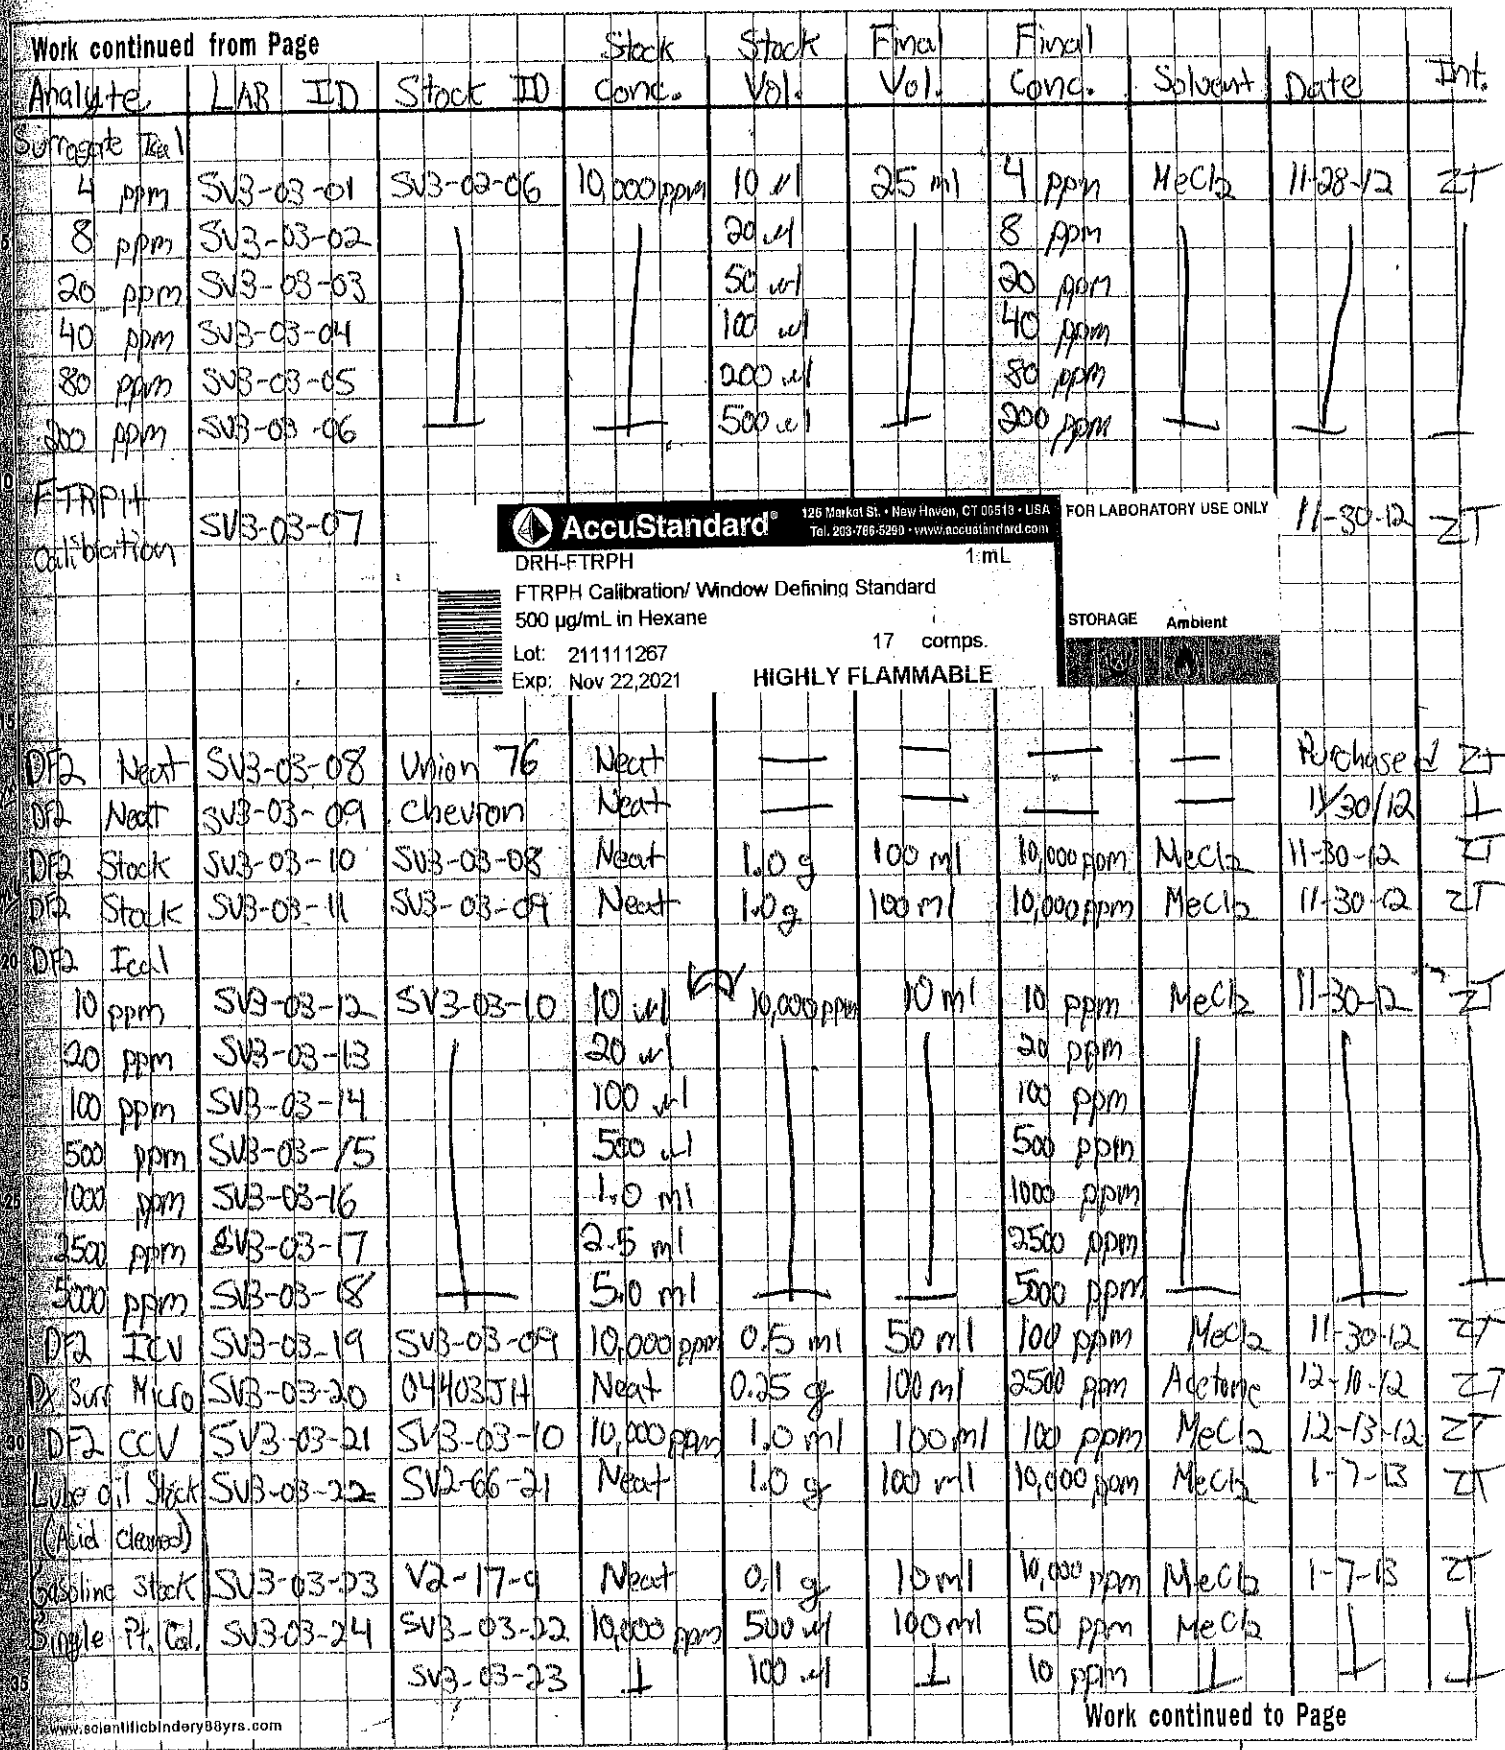 Work continued from Page
Stock Stock Final Final
Analyte LAB ID Stock ID Conc. Vol. Vol. Conc. Solvent Date Int.
Surrogate Ical
4 ppm SV3-03-01 SV3-02-06 10,000 ppm 10 ul 25 ml 4 ppm MeCl2 11-28-12 ZT
8 ppm SV3-03-02 20 ul 8 ppm
20 ppm SV3-03-03 50 ul 20 ppm
40 ppm SV3-03-04 100 ul 40 ppm
80 ppm SV3-03-05 200 ul 80 ppm
200 ppm SV3-03-06 500 ul 200 ppm
FTRPH
Calibration SV3-03-07 11-30-12 ZT
AccuStandard® 125 Market St. • New Haven, CT 06513 • USA
Tel. 203-786-5290 • www.accustandard.com
FOR LABORATORY USE ONLY
DRH-FTRPH 1 mL
FTRPH Calibration/ Window Defining Standard
500 µg/mL in Hexane
STORAGE Ambient
17 comps.
Lot: 211111267
Exp: Nov 22,2021 HIGHLY FLAMMABLE
DF2 Neat SV3-03-08 Union 76 Neat — — — — Purchased ZT
DF2 Neat SV3-03-09 Chevron Neat — — — — 11/30/12
DF2 Stock SV3-03-10 SV3-03-08 Neat 1.0 g 100 ml 10,000 ppm MeCl2 11-30-12 ZT
DF2 Stock SV3-03-11 SV3-03-09 Neat 1.0 g 100 ml 10,000 ppm MeCl2 11-30-12 ZT
20 DF2 Ical
10 ppm SV3-03-12 SV3-03-10 10 ul 10,000 ppm 10 ml 10 ppm MeCl2 11-30-12 ZT
20 ppm SV3-03-13 20 ul 20 ppm
100 ppm SV3-03-14 100 ul 100 ppm
500 ppm SV3-03-15 500 ul 500 ppm
25 1000 ppm SV3-03-16 1.0 ml 1000 ppm
2500 ppm SV3-03-17 2.5 ml 2500 ppm
5000 ppm SV3-03-18 5.0 ml 5000 ppm
DF2 ICV SV3-03-19 SV3-03-09 10,000 ppm 0.5 ml 50 ml 100 ppm MeCl2 11-30-12 ZT
Dx Surr Micro SV3-03-20 04403JH Neat 0.25 g 100 ml 2500 ppm Acetone 12-10-12 ZT
30 DF2 CCV SV3-03-21 SV3-03-10 10,000 ppm 1.0 ml 100 ml 100 ppm MeCl2 12-13-12 ZT
Lube oil Stock SV3-03-22 SV2-66-21 Neat 1.0 g 100 ml 10,000 ppm MeCl2 1-7-13 ZT
(Acid Cleaned)
Gasoline Stock SV3-03-23 V2-17-9 Neat 0.1 g 10 ml 10,000 ppm MeCl2 1-7-13 ZT
Single Pt. Cal. SV3-03-24 SV3-03-22 10,000 ppm 500 ul 100 ml 50 ppm MeCl2
35 SV3-03-23 100 ul 10 ppm
www.scientificbindery88yrs.com
Work continued to Page